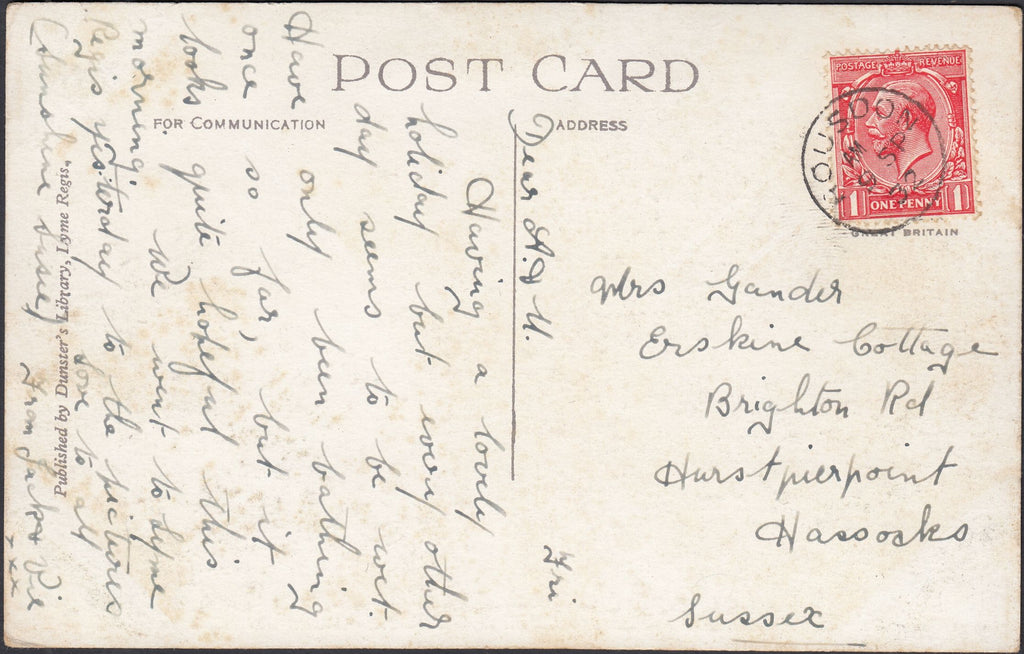 POST CARD
FOR COMMUNICATION
ADDRESS
POSTAGE REVENUE
ONE PENNY
1 1
GREAT BRITAIN
ROUSDON
AM
9 SP
32
Fri
Dear A. & U.
Having a lovely
holiday but every other
day seems to be wet.
Have only been bathing
once so far, but it
looks quite hopeful this
morning. We went to Lyme
Regis yesterday to the pictures
(Sunshine Susie) Love to all
From Jack & Vie
xx
Published by Dunster's Library, Lyme Regis.
Mrs Gander
Erskine Cottage
Brighton Rd
Hurstpierpoint
Hassocks
Sussex